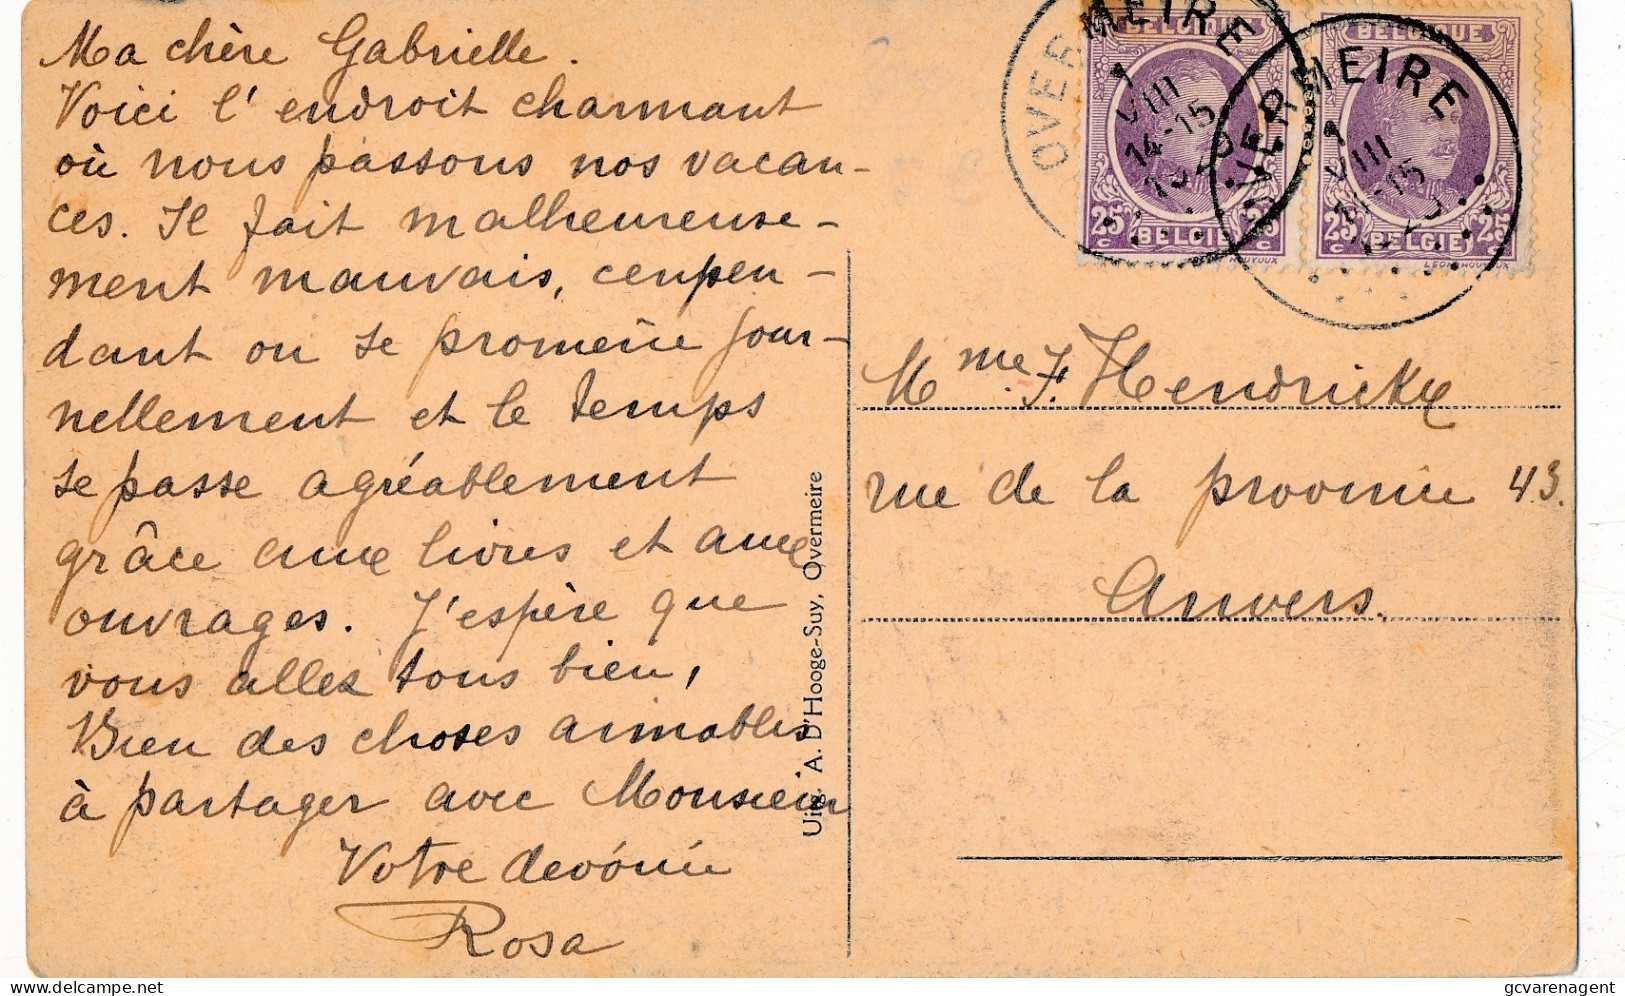 Ma chère Gabrielle.
Voici l'endroit charmant
où nous passons nos vacan-
ces. Il fait malheureuse-
ment mauvais, cenpen-
dant on se promène jour-
nellement et le temps
se passe agréablement
grâce aux livres et aux
ouvrages. J'espère que
vous allez tous bien,
Bien des choses aimables
à partager avec Monsieur
Votre devouée
Rosa
Uitg. A. D'Hooge-Suy, Overmeire
OVERMEIRE
1
VIII
14-15
BELGIQUE
25 c
BELGIE
25 c
HOUYOUX
OVERMEIRE
1
VIII
14-15
BELGIQUE
25 c
BELGIE
25 c
Mme F. Hendrickx
rue de la province 43.
Anvers.
www.delcampe.net
gcvarenagent